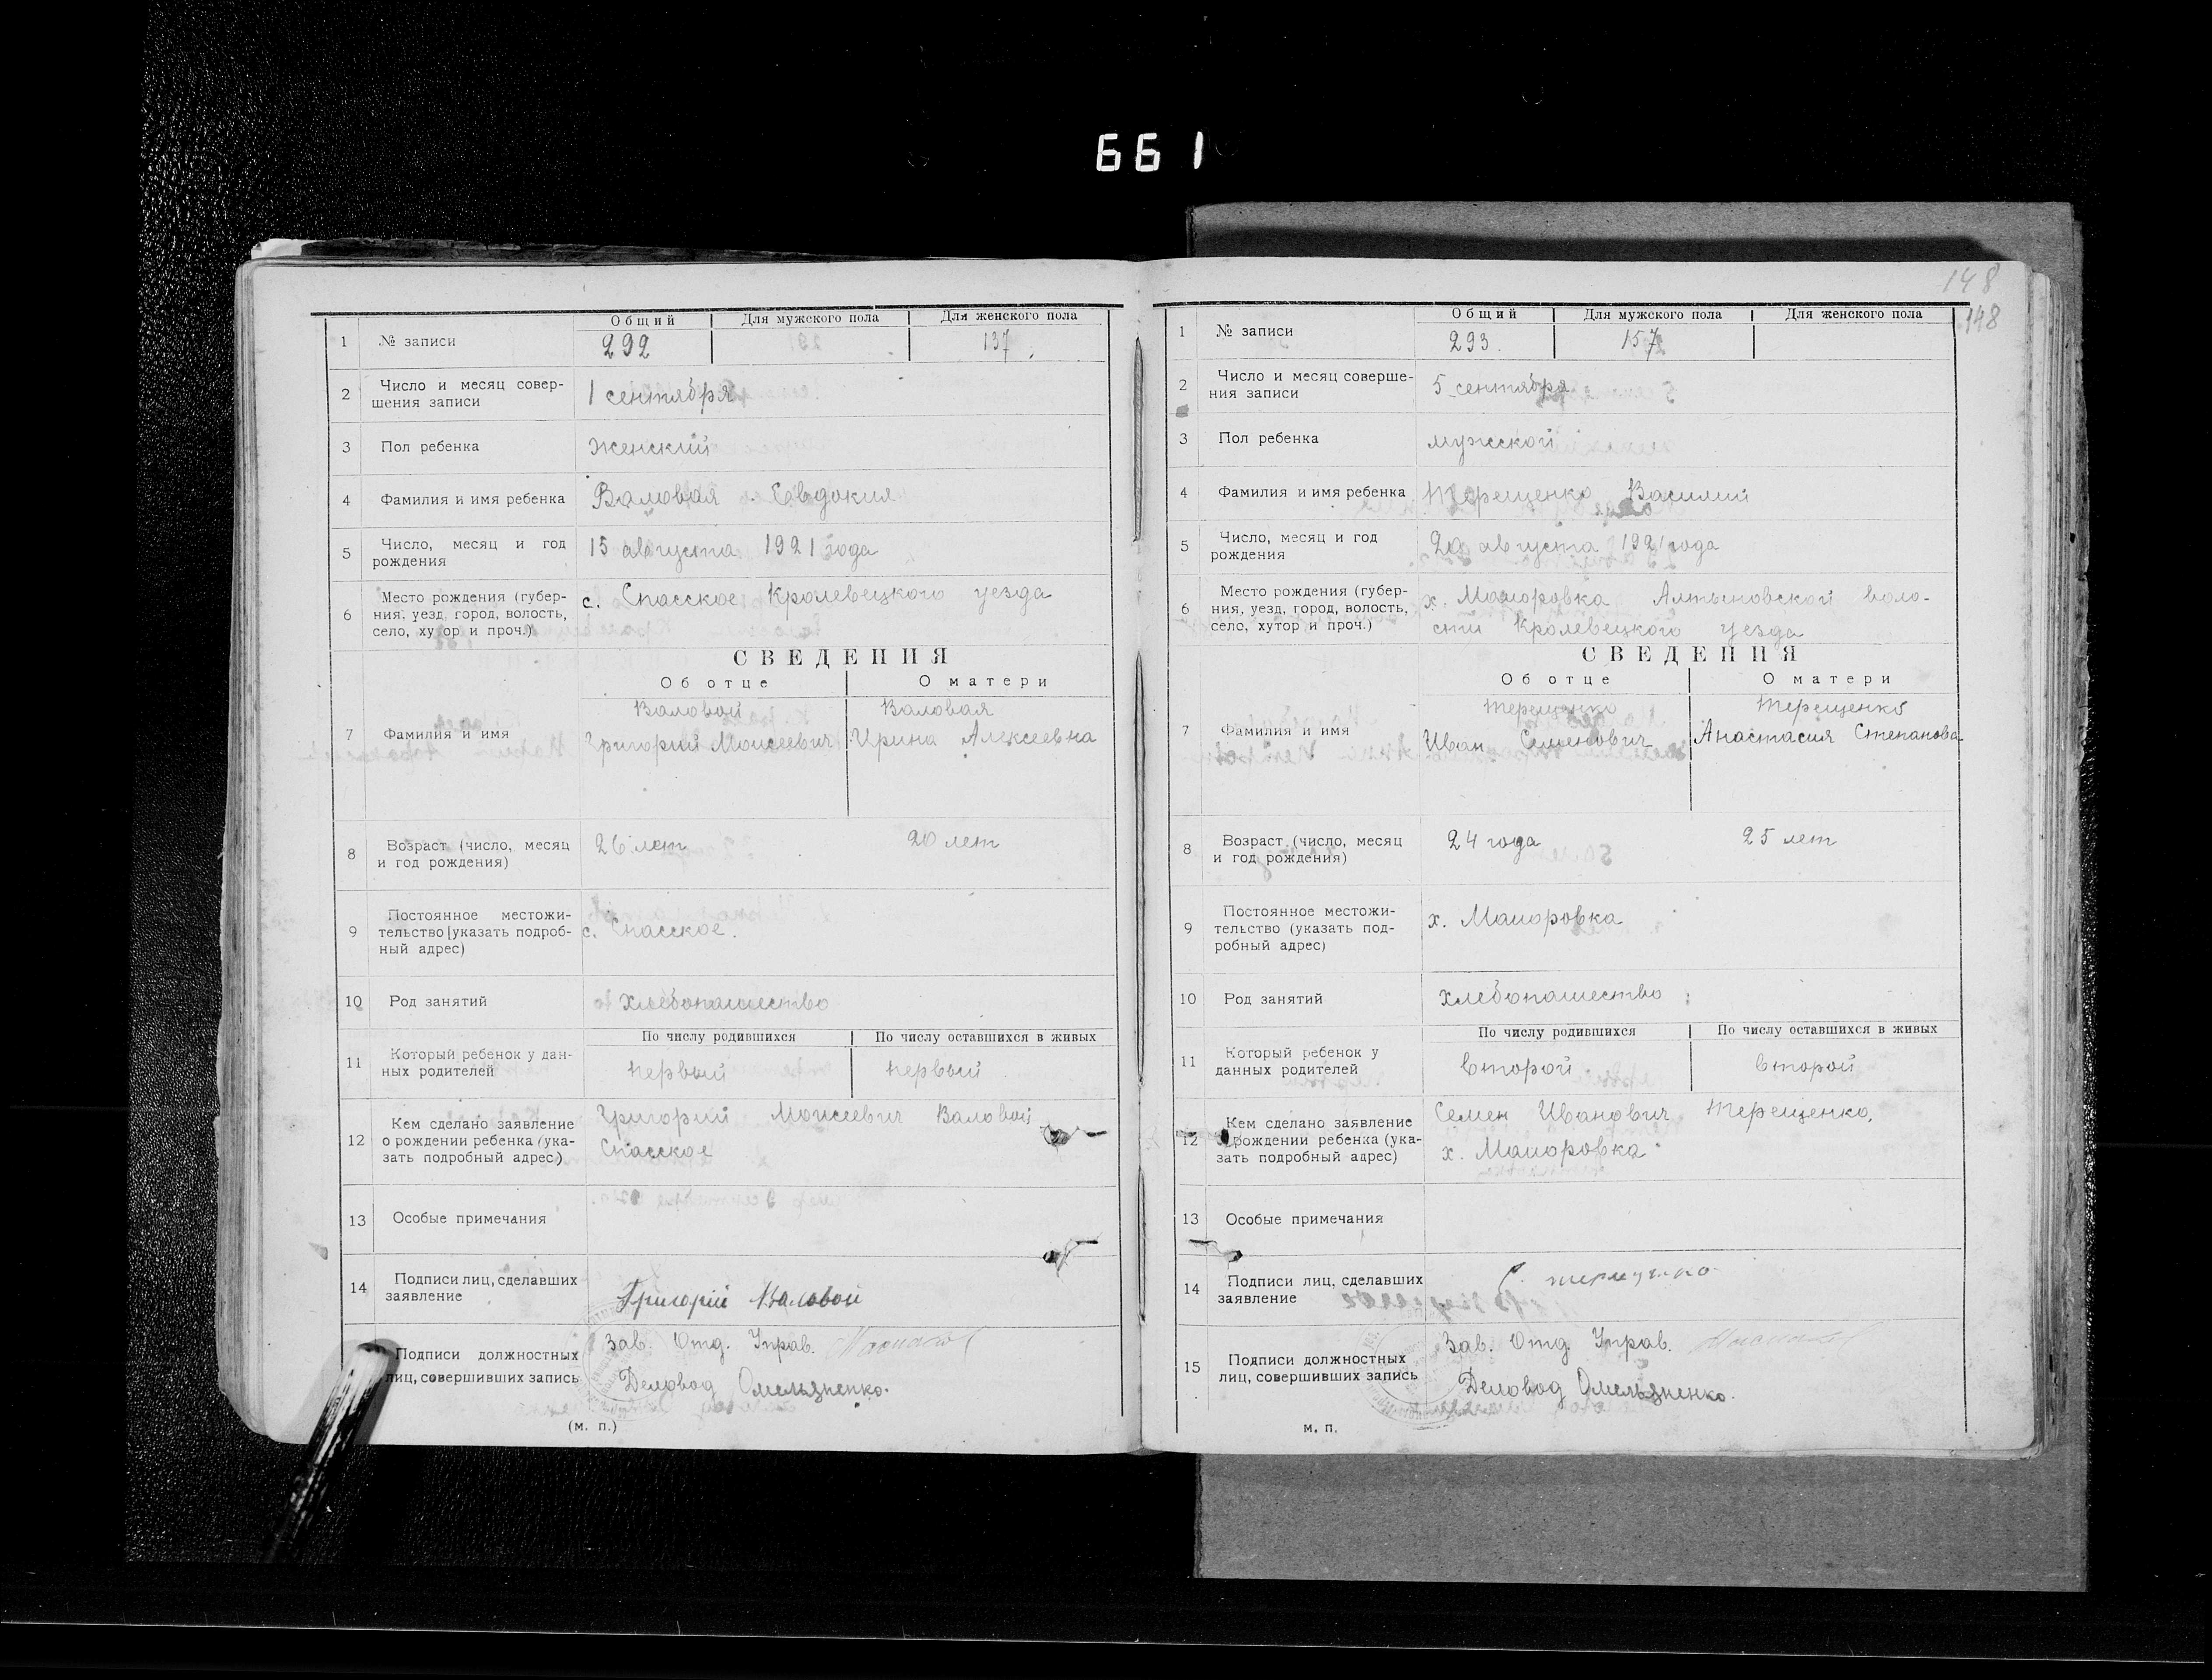 661
Общий Для мужского пола Для женского пола
1 № записи 292 137
2 Число и месяц совер-
шения записи 1 сентября
3 Пол ребенка Женский
4 Фамилия и имя ребенка Валовая Евдокия
5 Число, месяц и год
рождения 15 августа 1921 года
6 Место рождения (губер-
ния, уезд, город, волость,
село, хутор и проч.) с. Спасское Кролевецкого уезда
СВЕДЕНИЯ
Об отце О матери
7 Фамилия и имя
Валовой Валовая
Григорий Моисеевич Ирина Алексеевна
8 Возраст (число, месяц
и год рождения) 26 лет 20 лет
9 Постоянное местожи-
тельство (указать подроб-
ный адрес) с. Спасское.
10 Род занятий хлебопашество
По числу родившихся По числу оставшихся в живых
11 Который ребенок у дан-
ных родителей первый первый
12 Кем сделано заявление
о рождении ребенка (ука-
зать подробный адрес) Григорий Моисеевич Валовой
Спасское
13 Особые примечания
14 Подписи лиц, сделавших
заявление Григорій Валовой
Подписи должностных
лиц, совершивших запись Зав. Отд. Управ.
Деловод Омельяненко.
(м. п.)
148
148
Общий Для мужского пола Для женского пола
1 № записи 293. 157
2 Число и месяц соверше-
ния записи 5 сентября
3 Пол ребенка мужской
4 Фамилия и имя ребенка Терещенко Василий
5 Число, месяц и год
рождения 20 августа 1921 года
6 Место рождения (губер-
ния, уезд, город, волость,
село, хутор и проч.) х. Маиоровка Алтыновской воло-
сти Кролевецкого уезда
СВЕДЕНИЯ
Об отце О матери
7 Фамилия и имя
Терещенко Терещенко
Иван Семенович Анастасия Степанова
8 Возраст (число, месяц
и год рождения) 24 года 25 лет
9 Постоянное местожи-
тельство (указать под-
робный адрес) х. Маиоровка
10 Род занятий хлебопашество
По числу родившихся По числу оставшихся в живых
11 Который ребенок у
данных родителей второй второй
12 Кем сделано заявление
о рождении ребенка (ука-
зать подробный адрес) Семен Иванович Терещенко,
х. Маиоровка
13 Особые примечания
14 Подписи лиц, сделавших
заявление С. терещенко
15 Подписи должностных
лиц, совершивших запись Зав. Отд. Управ.
Деловод Омельяненко.
м. п.